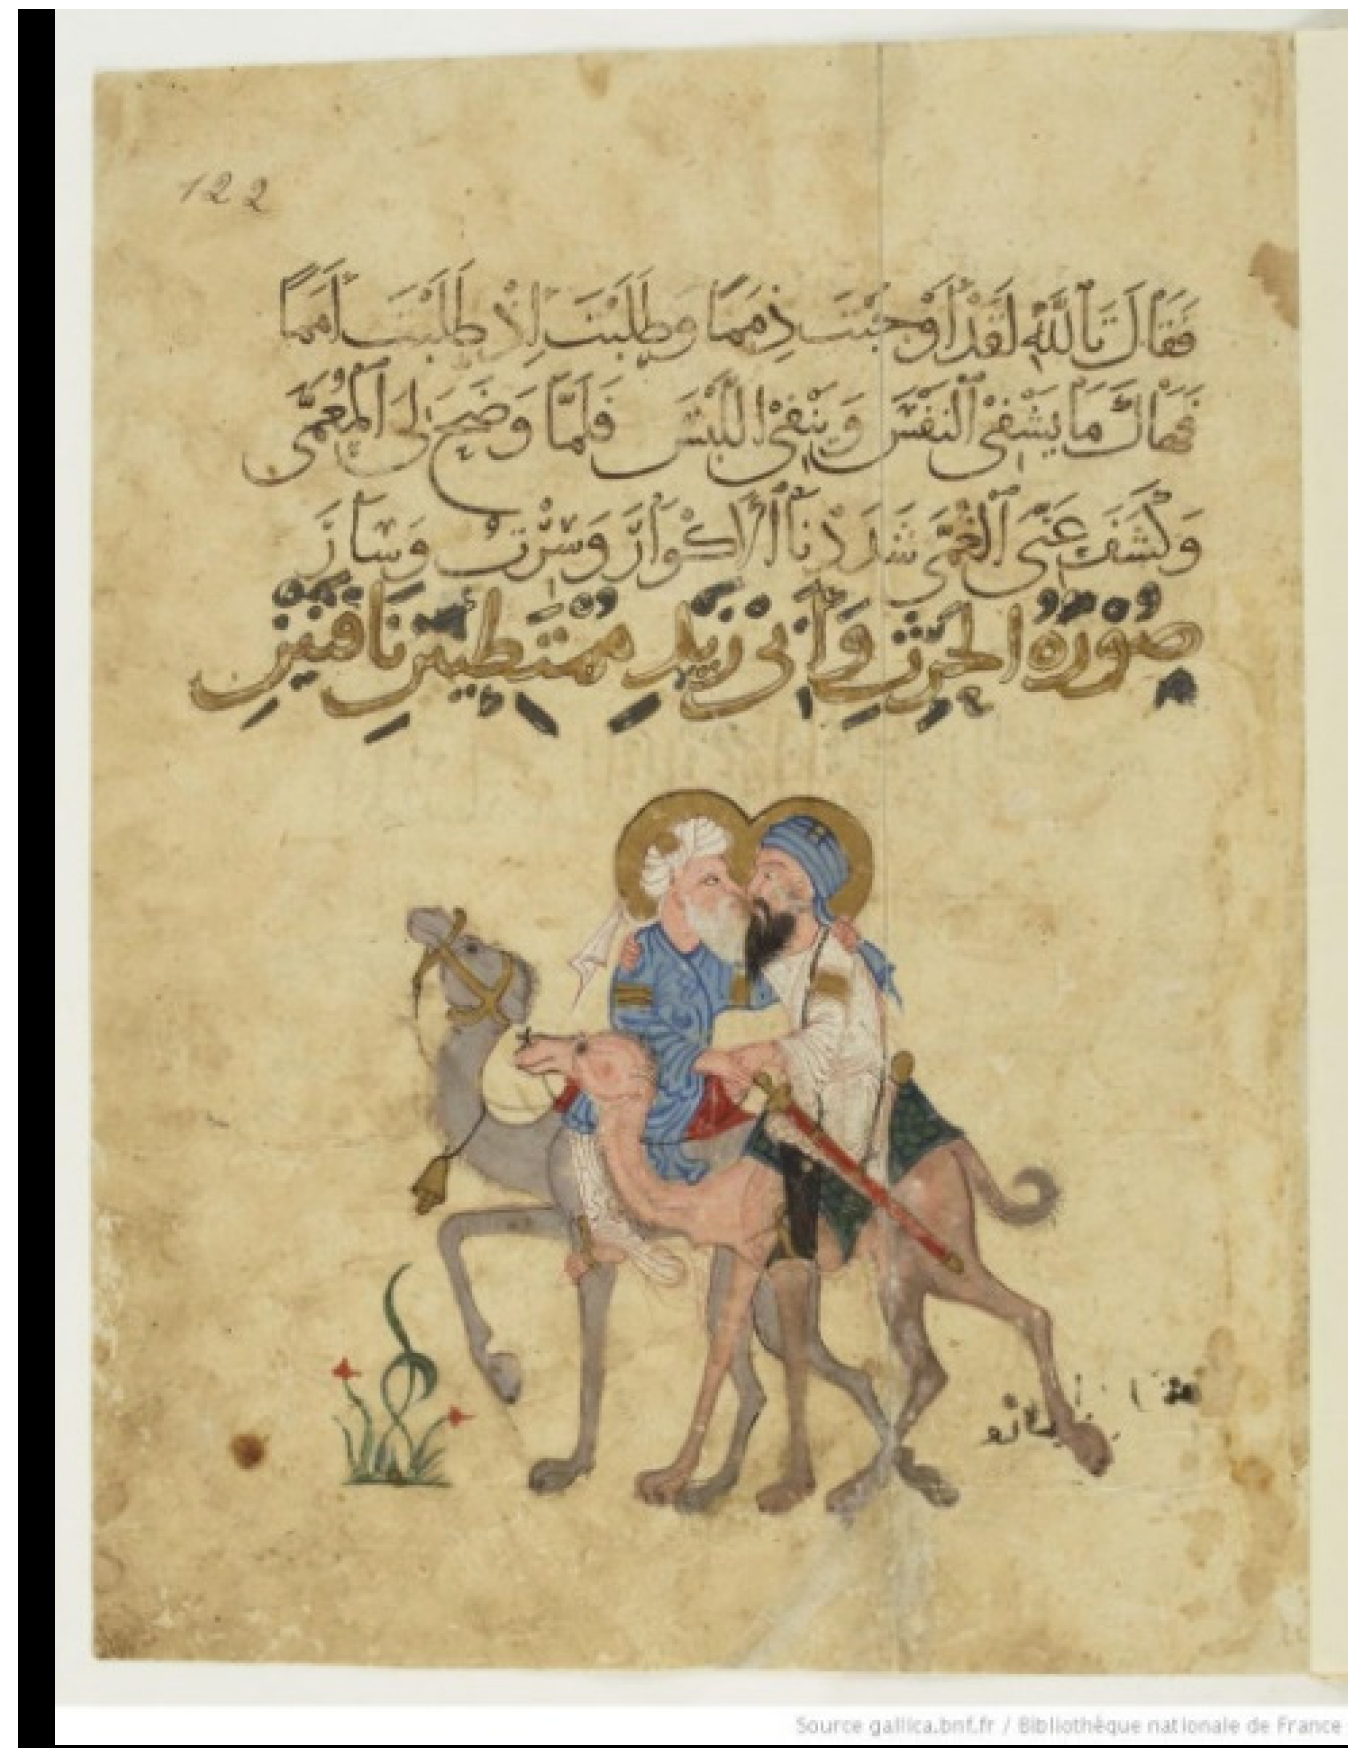 122
فَقَالَ تَاللَّهِ لَقَدْ أَوْجَبْتَ ذِمَمًا وَطَلَبْتَ إِذْ طَلَبْتَ أَمَمًا
فَهَاكَ مَا يَشْفِي النَّفْسَ وَيَنْفِي اللَّبْسَ فَلَمَّا وَضَحَ لِيَ الْمُعَمَّى
وَكَشَفَ عَنِّي الْغُمَّى شَدَدْنَا الْأَكْوَارَ وَسِرْتُ وَسَارَ
صُورَةُ الْحَرِثِ وَأَبِي زَيْدٍ مُمْتَطِيَيْنِ نَاقَتَيْنِ
Source gallica.bnf.fr / Bibliothèque nationale de France